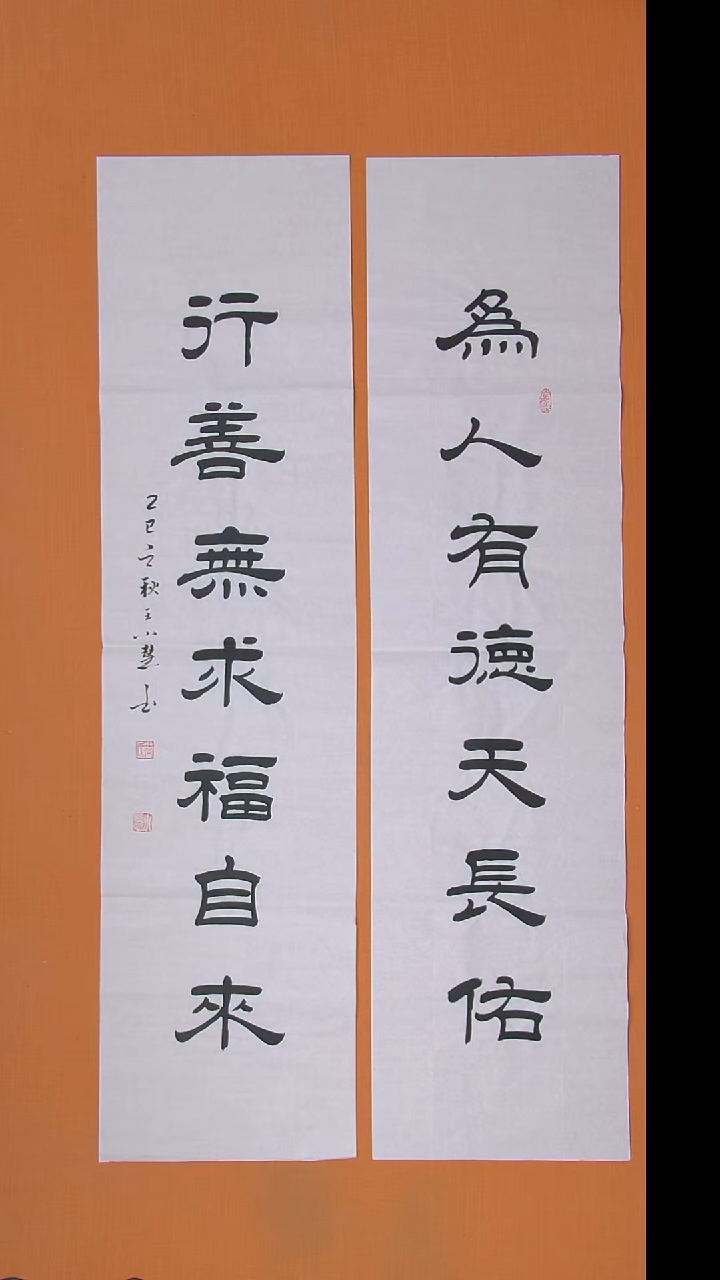 為人有德天長佑
行善無求福自來
乙巳之秋王小慧書